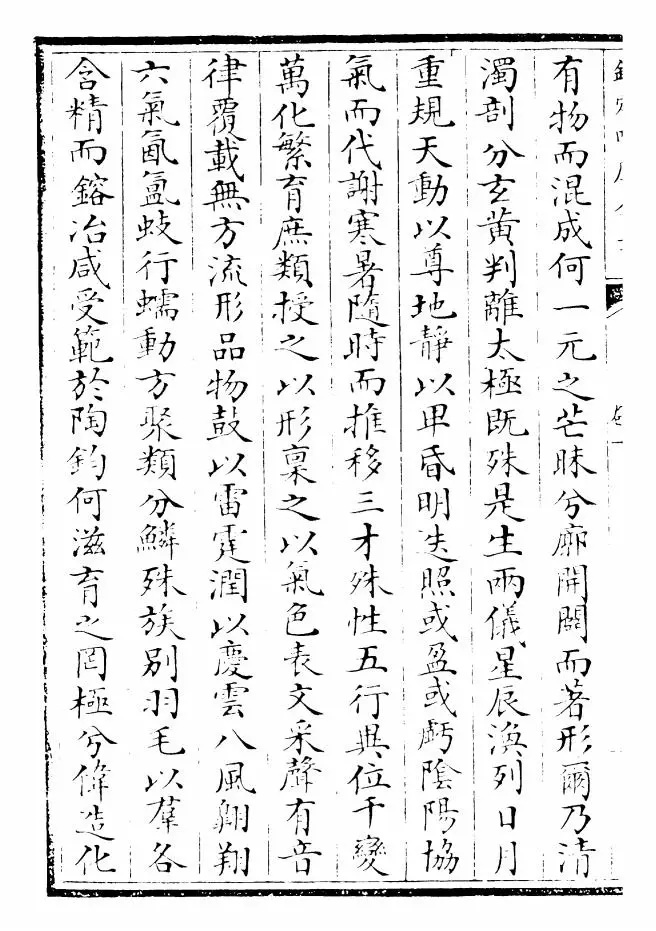 有物而混成何一元之芒昧兮廓開闢而著形爾乃清
濁剖分玄黃判離太極既殊是生兩儀星辰渙列日月
重規天動以尊地靜以卑昏明迭照或盈或虧陰陽協
氣而代謝寒暑隨時而推移三才殊性五行異位千變
萬化繁育庶類授之以形稟之以氣色表文采聲有音
律覆載無方流形品物鼓以雷霆潤以慶雲八風翺翔
六氣氤氳蚑行蠕動方聚類分鱗殊族別羽毛以羣各
含精而鎔冶咸受範於陶鈞何滋育之罔極兮偉造化